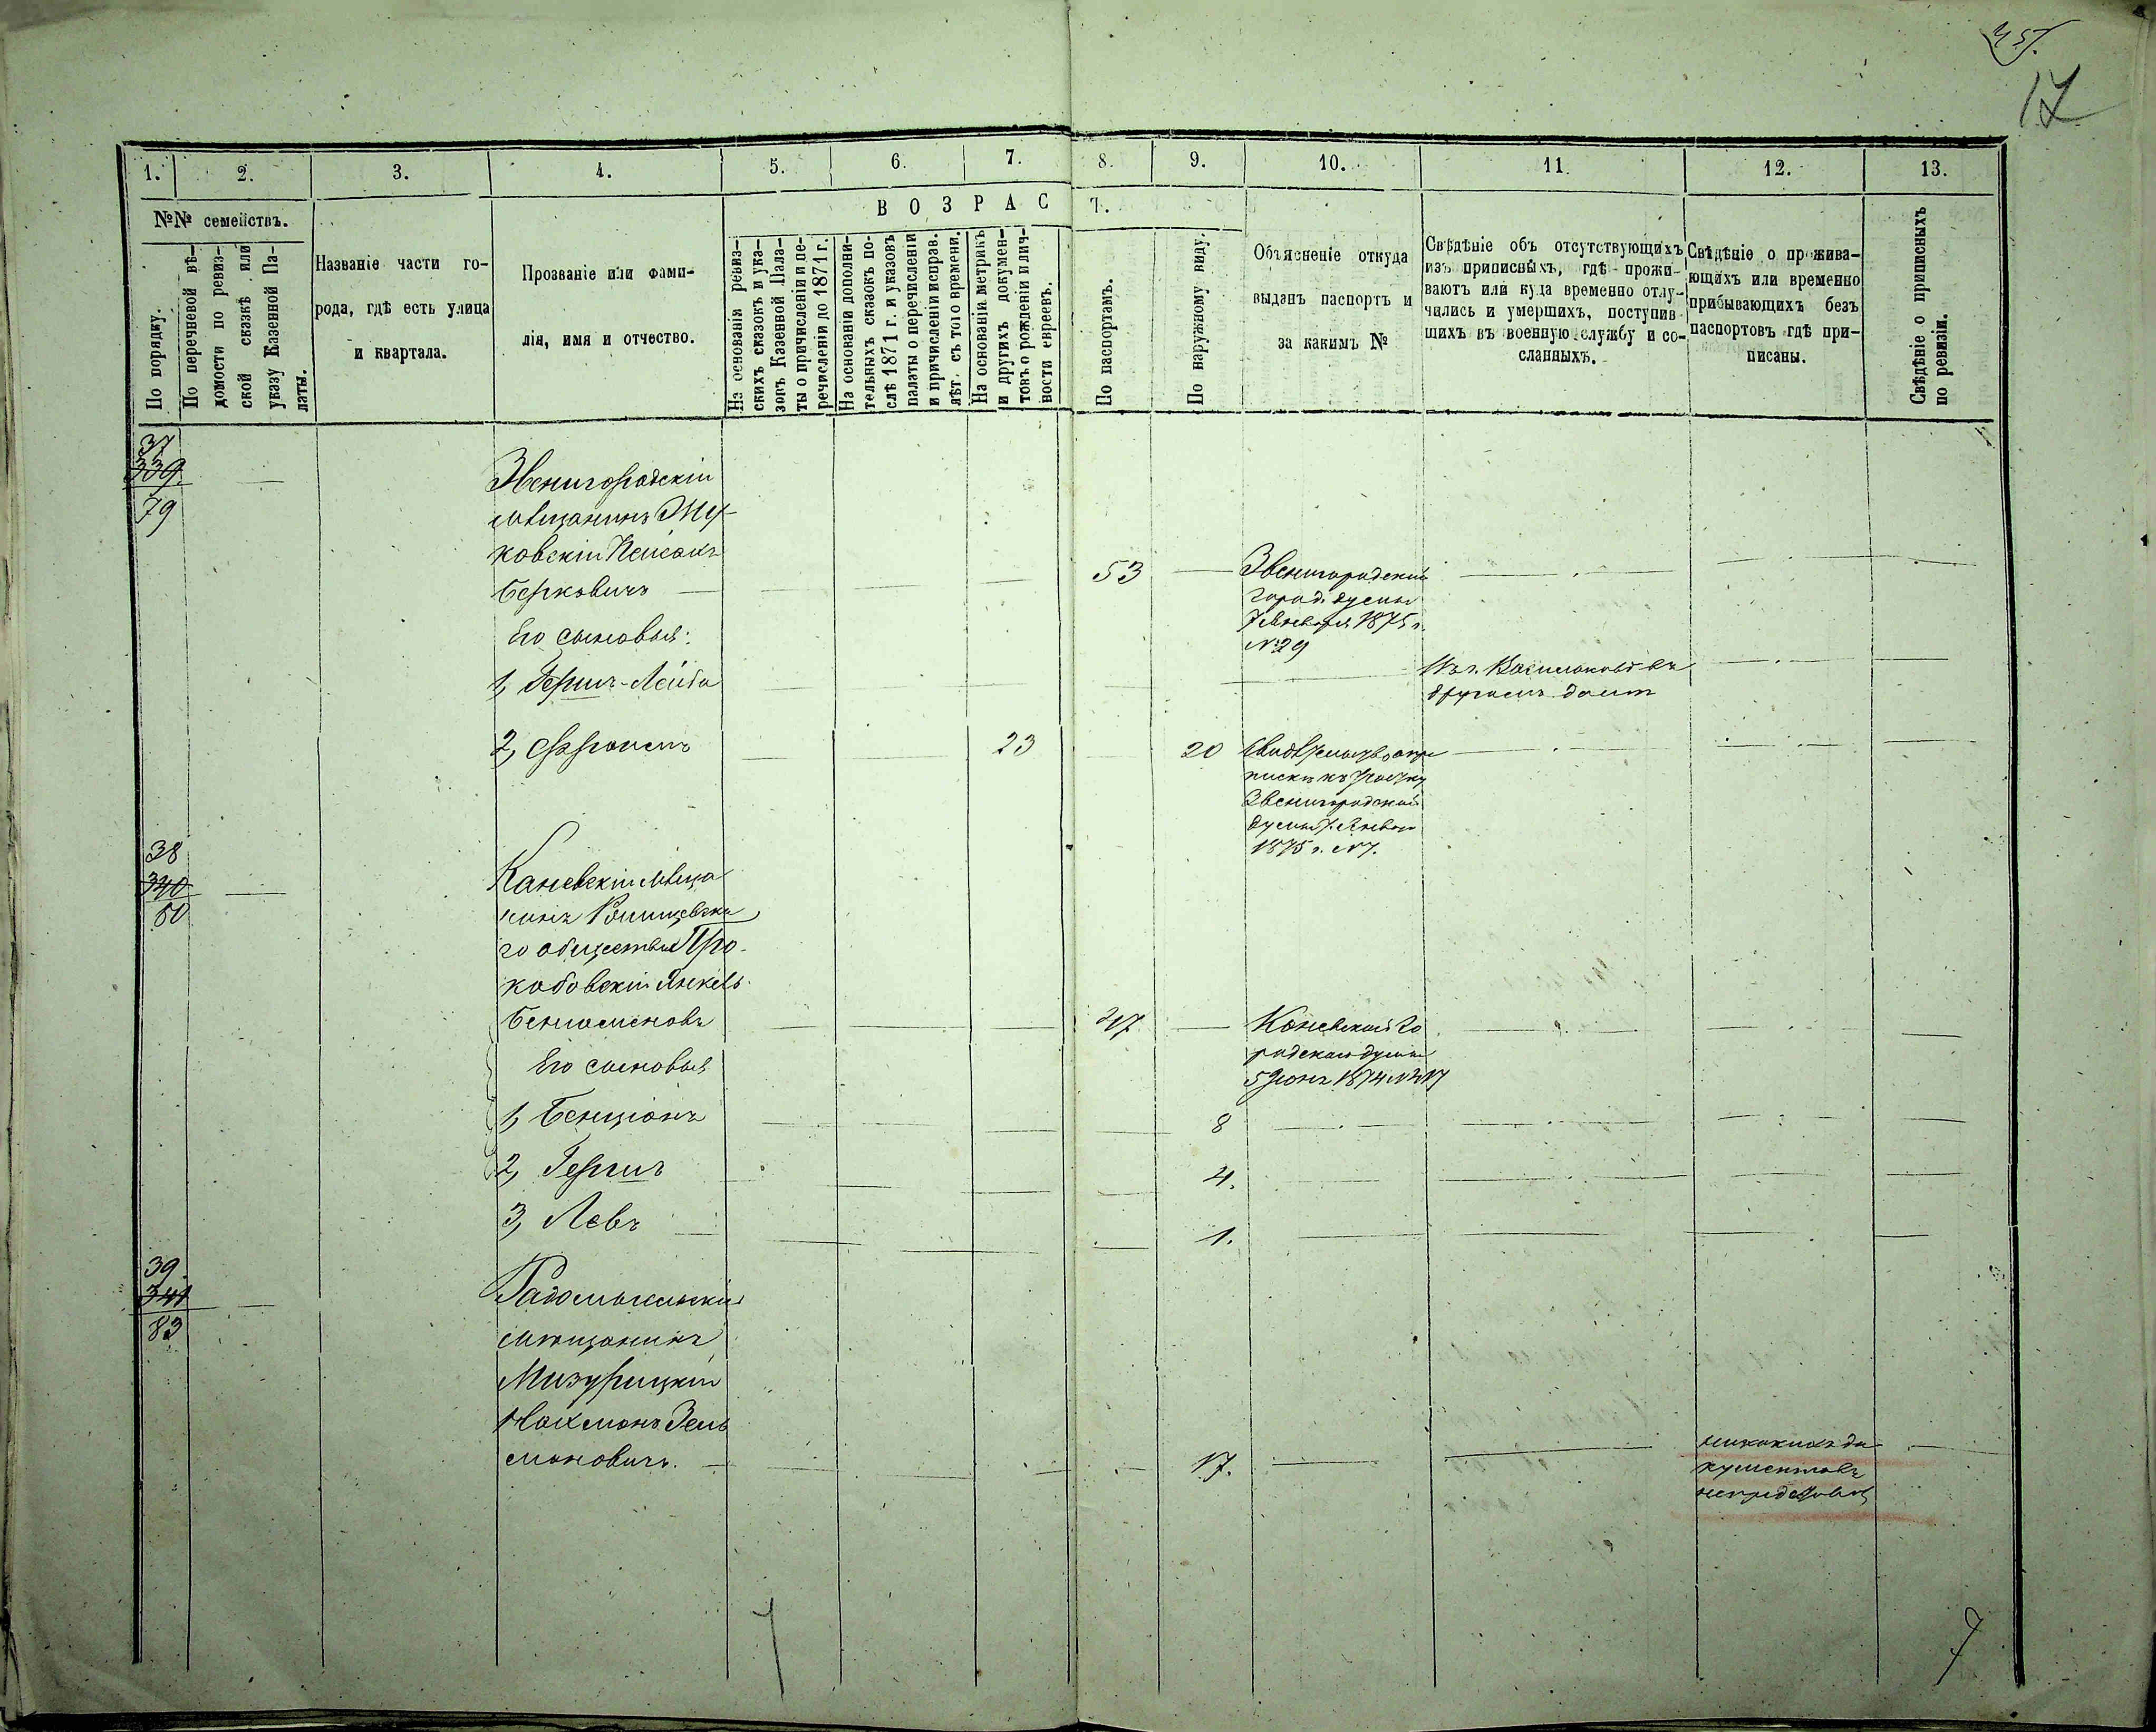 17
1.
2.
3.
4.
5.
6.
7.
8.
9.
10.
11.
12.
13.
№№ семействъ.
По порядку.
По перечневой вѣ-
домости по ревиз-
ской сказкѣ или
указу Казенной Па-
латы.
Названіе части го-
рода, гдѣ есть улица
и квартала.
Прозваніе или фами-
лія, имя и отчество.
В О З Р А С Т.
На основаніи ревиз-
скихъ сказокъ и ука-
зовъ Казенной Пала-
ты о причисленіи и пе-
речисленіи до 1871 г.
На основаніи дополни-
тельныхъ сказокъ по-
слѣ 1871 г. и указовъ
палаты о перечисленіи
и причисленіи исправ.
лѣт. съ того времени.
На основаніи метрикъ
и другихъ докумен-
товъ о рожденіи и лич-
ности евреевъ.
По паспортамъ.
По наружному виду.
Объясненіе откуда
выданъ паспортъ и
за какимъ №
Свѣдѣніе объ отсутствующихъ
изъ приписныхъ, гдѣ прожи-
ваютъ или куда временно отлу-
чились и умершихъ, поступив-
шихъ въ военную службу и со-
сланныхъ.
Свѣдѣніе о прожива-
ющихъ или временно
прибывающихъ безъ
паспортовъ гдѣ при-
писаны.
Свѣдѣніе о приписныхъ
по ревизіи.
37
339
79
Звенигородскій
мѣщанинъ Жу-
ковскій Пейсахъ
Берковичъ
53
Звенигородской
город. думы
7 Января 1875 г.
№ 29
Его сыновья:
1, Гершъ-Лейба
въ г. Васильковѣ въ
другомъ домѣ
2, Эфроимъ
23
20
Свидѣтельство о при
пискѣ къ участку
Звенигородской
думы 7 Января
1875 г. №7.
38
340
80
Каневскій мѣща
нинъ
го общества
Янкель
Беньоминовъ
Каневской Го
родской думы
5 Юня 1874 №
Его сыновья
1, Бенціонъ
8
2, Гершъ
4.
3, Левъ
1.
39.
341
83
Радомысльскій
мѣщанинъ
Мизурицкій
Нахманъ Зель
мановичъ.
17.
никакихъ до
кументовъ